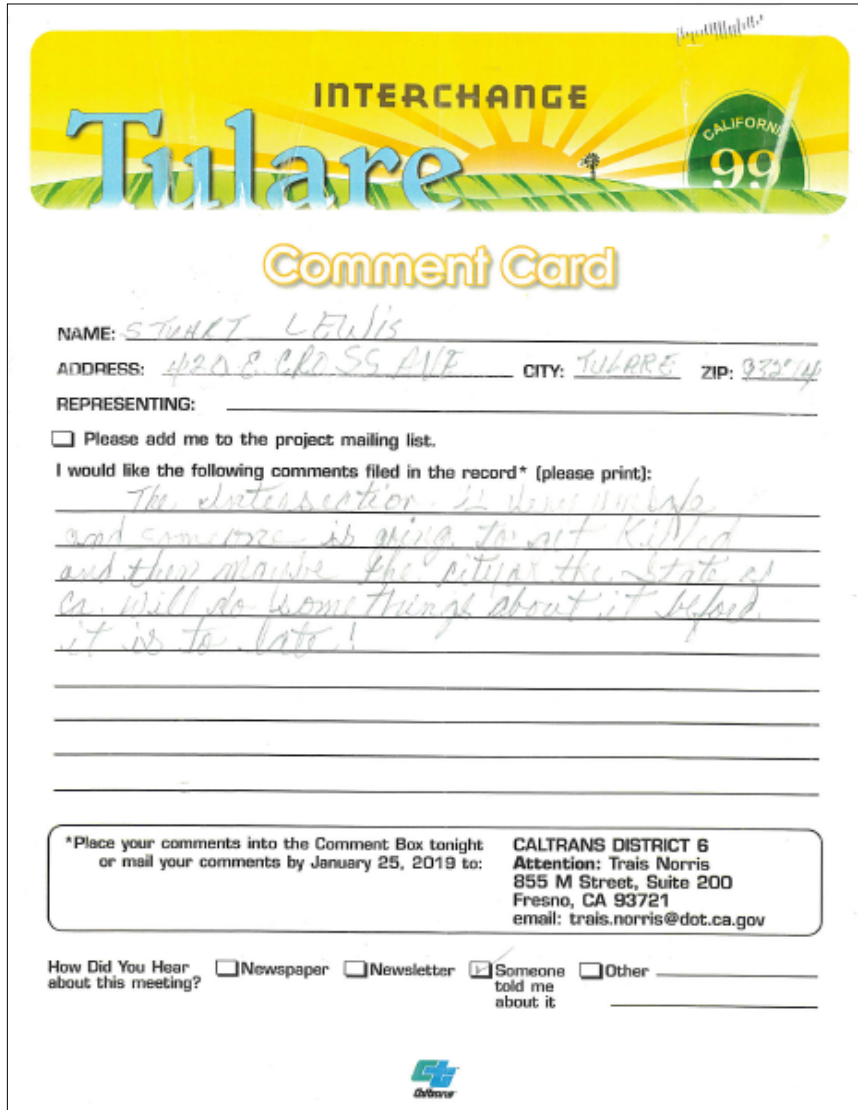 INTERCHANGE
Tulare
CALIFORNIA
99
Comment Card
NAME: STUART LEWIS
ADDRESS: 420 E CROSS AVE CITY: TULARE ZIP: 93274
REPRESENTING:
Please add me to the project mailing list.
I would like the following comments filed in the record* (please print):
The Intersection is very unsafe
and someone is going to get Killed
and then maybe the city or the State of
Ca. will do some things about it before
it is to late!
*Place your comments into the Comment Box tonight
or mail your comments by January 25, 2019 to:
CALTRANS DISTRICT 6
Attention: Trais Norris
855 M Street, Suite 200
Fresno, CA 93721
email: trais.norris@dot.ca.gov
How Did You Hear
about this meeting?
Newspaper
Newsletter
Someone
told me
about it
Other
Caltrans